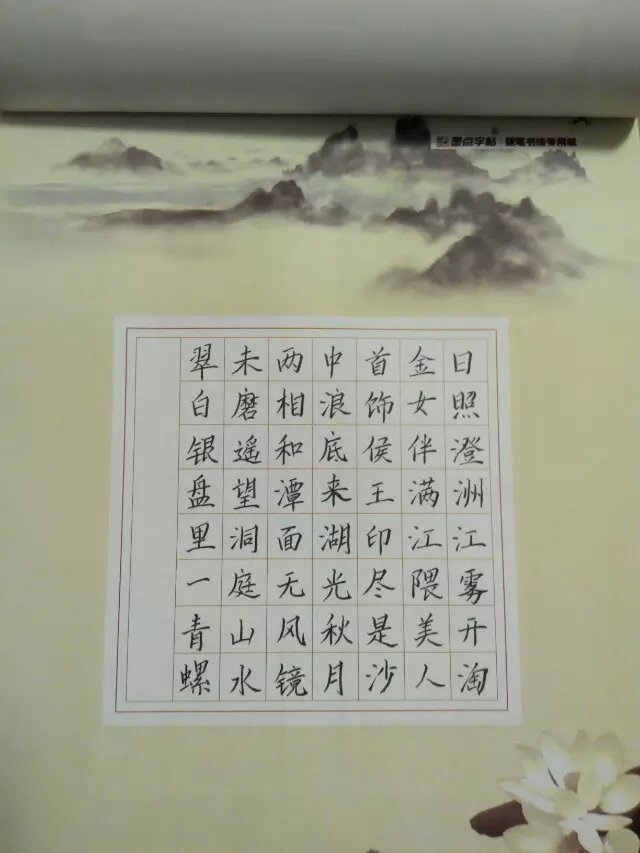 墨点字帖 硬笔书法专用纸
日照澄洲江雾开淘
金女伴满江隈美人
首饰侯王印尽是沙
中浪底来湖光秋月
两相和潭面无风镜
未磨遥望洞庭山水
翠白银盘里一青螺